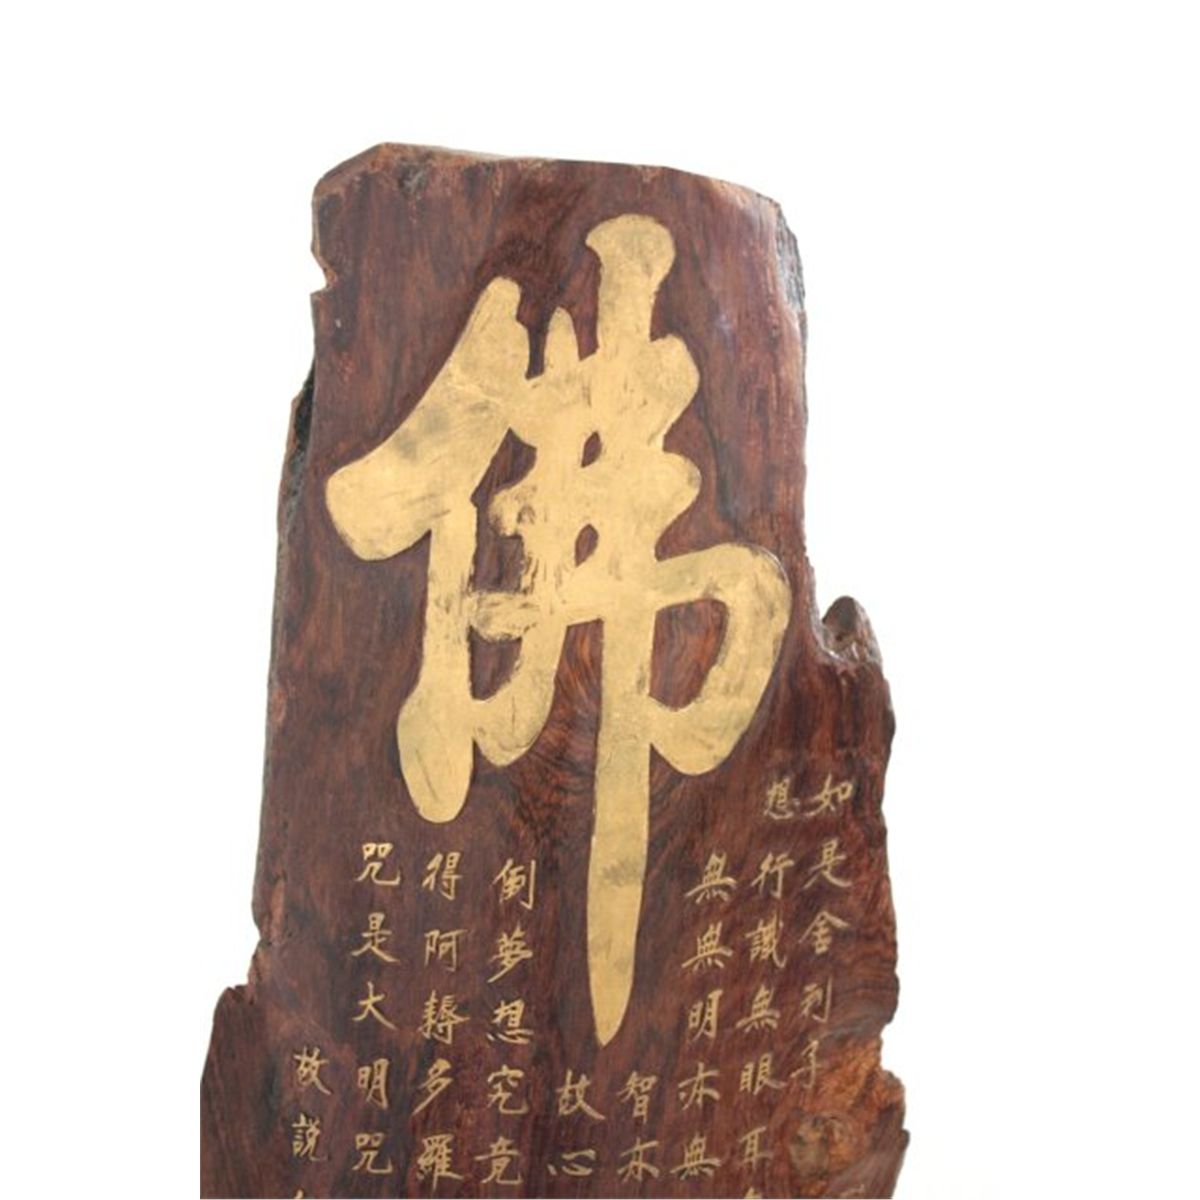 佛
如是舍利子
想行識無眼耳
無無明亦無
智亦
故心
倒夢想究竟
得阿耨多羅
咒是大明咒
故說